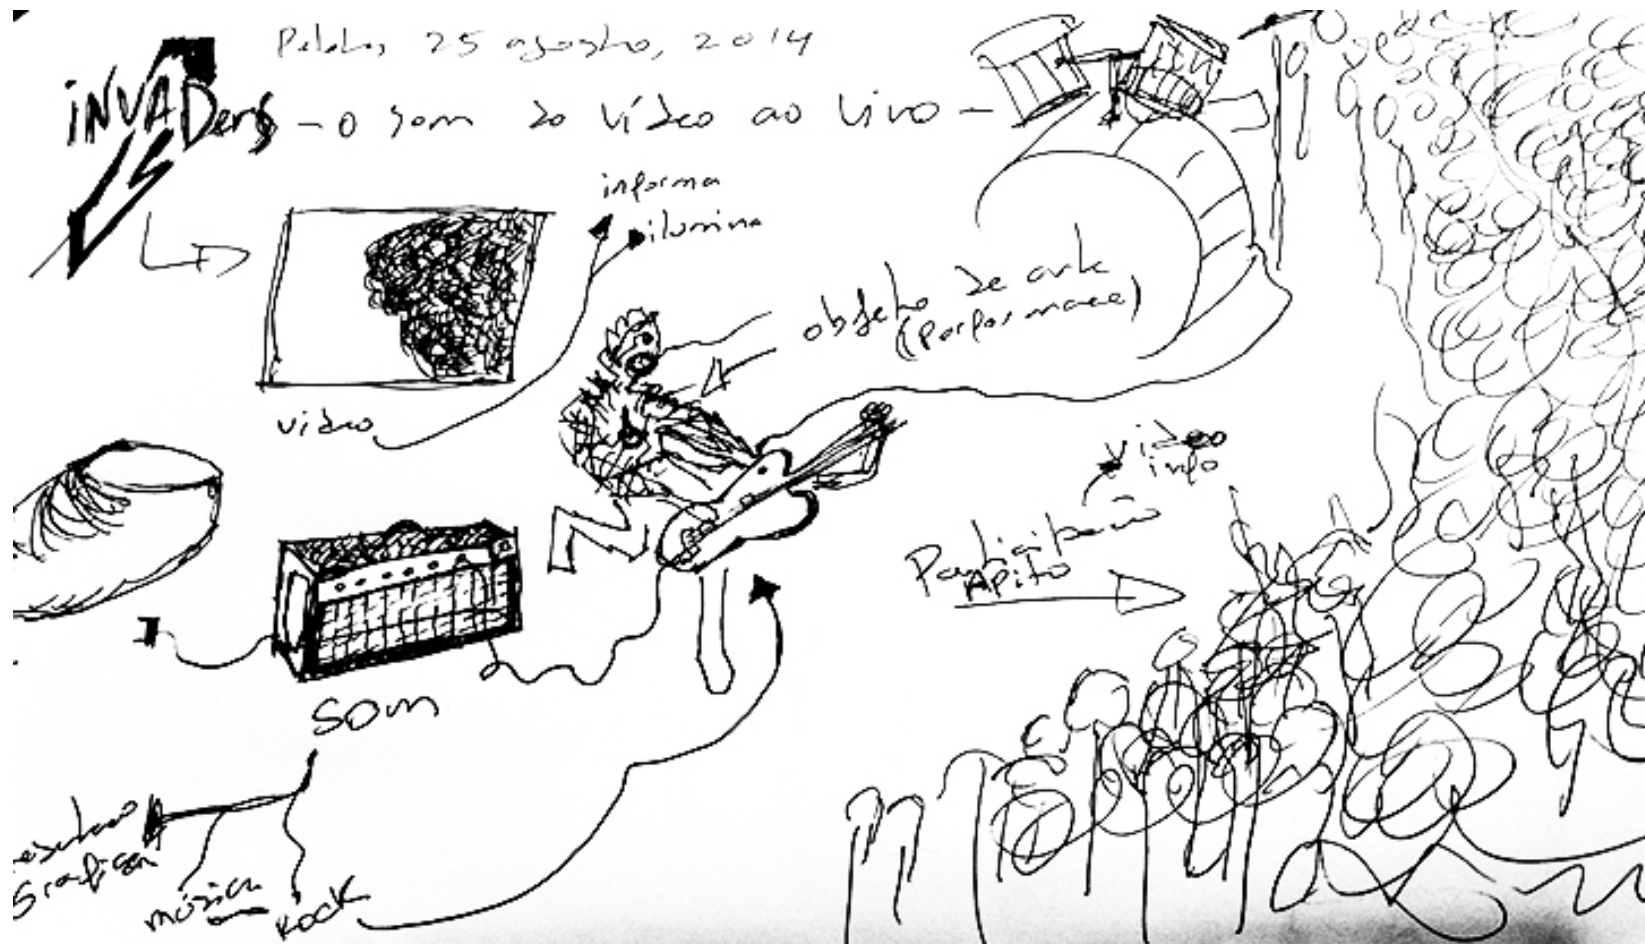 Pelotas, 25 agosto, 2014
iNVADers - o som do vídeo ao vivo -
informa
ilumina
objeto de arte
(performance)
vídeo
vídeo
info
Participação
APito
som
música
Rock